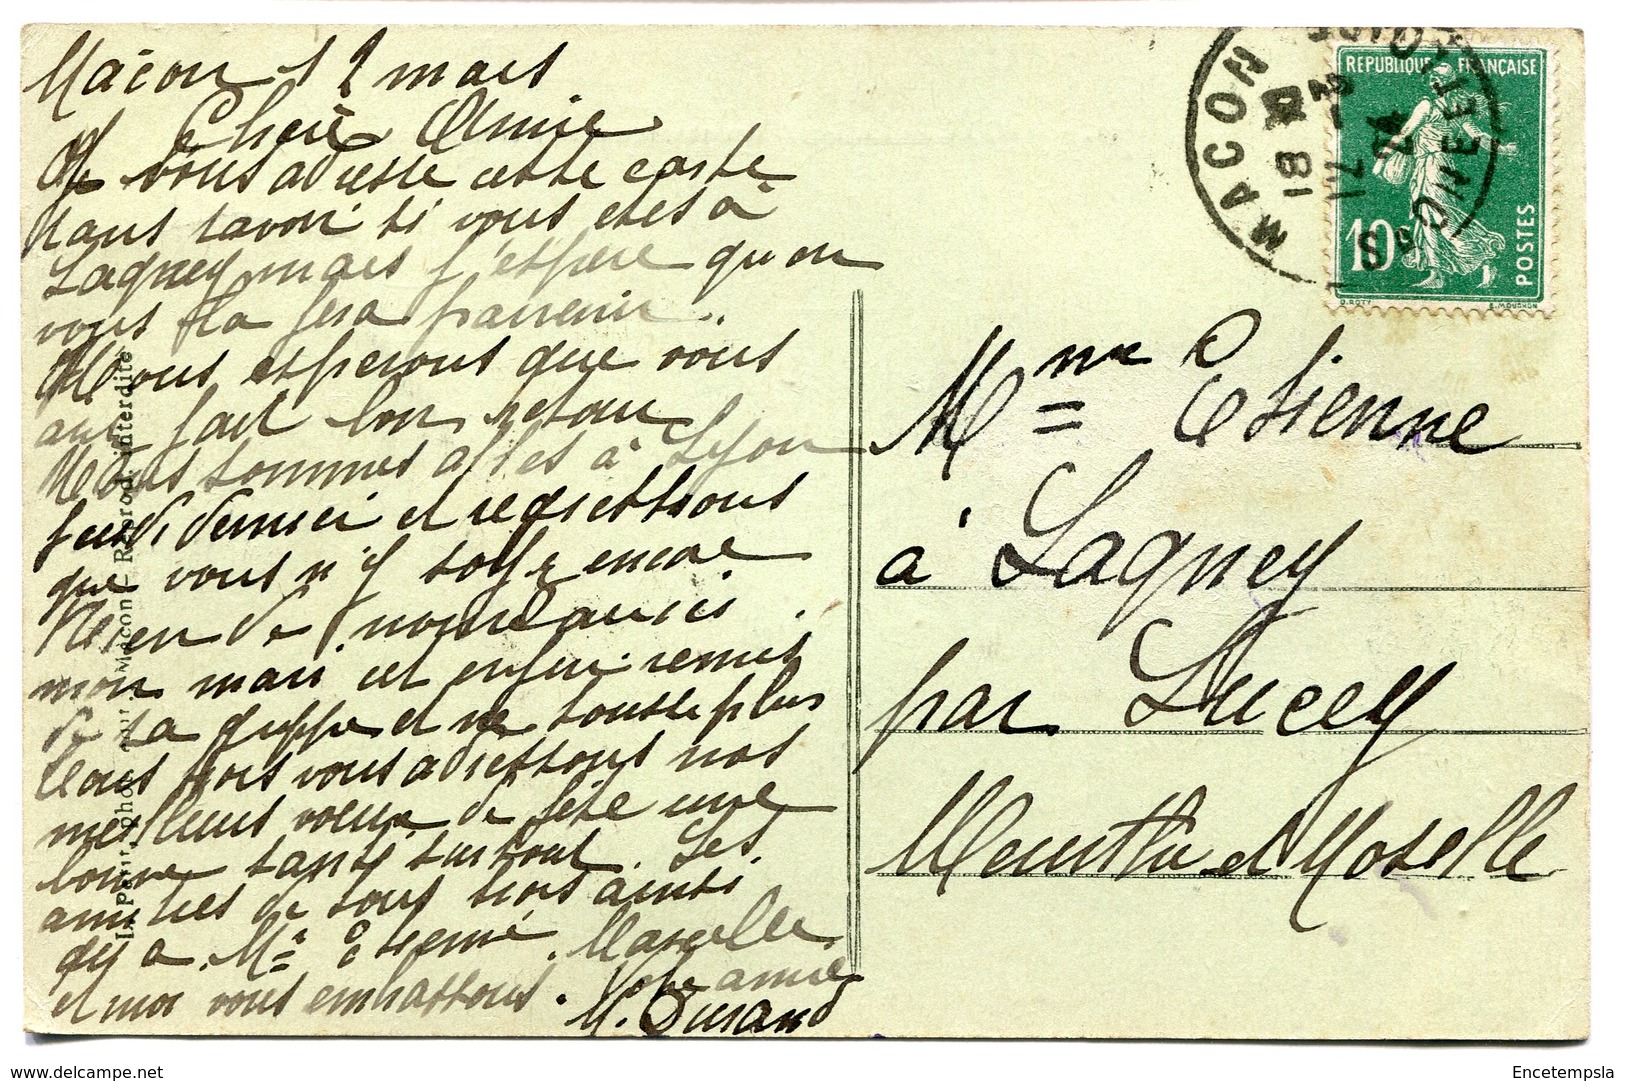 Mâcon 12 mars
Chère Amie
Je vous adresse cette carte
sans savoir si vous etes à
Lagney mais j'espère qu'on
vous la fera parvenir.
Nous esperons que vous
avez fait bon retour
Nous sommes allés à Lyon
jeudi dernier et regrettons
que vous n'y soyez encore
Rien de nouveau ici.
mon mari est enfin remis
de sa grippe et ne tousse plus
Tous trois vous adressons nos
meilleurs voeux de fête une
bonne santé surtout. Les
amitiés de tous trois ainsi
qu'a Mr Etienne. Marcelle
et moi vous embrassons. Votre amie
M. Durand
L. Phot., Macon - Reprod. interdite
MACON
SAONE ET LOIRE
18
12 - 3
24
REPUBLIQUE FRANÇAISE
10c
POSTES
O. ROTY
E. MOUCHON
Mme Etienne
à Lagney
par Lucey
Meurthe et Moselle
Encetempsla